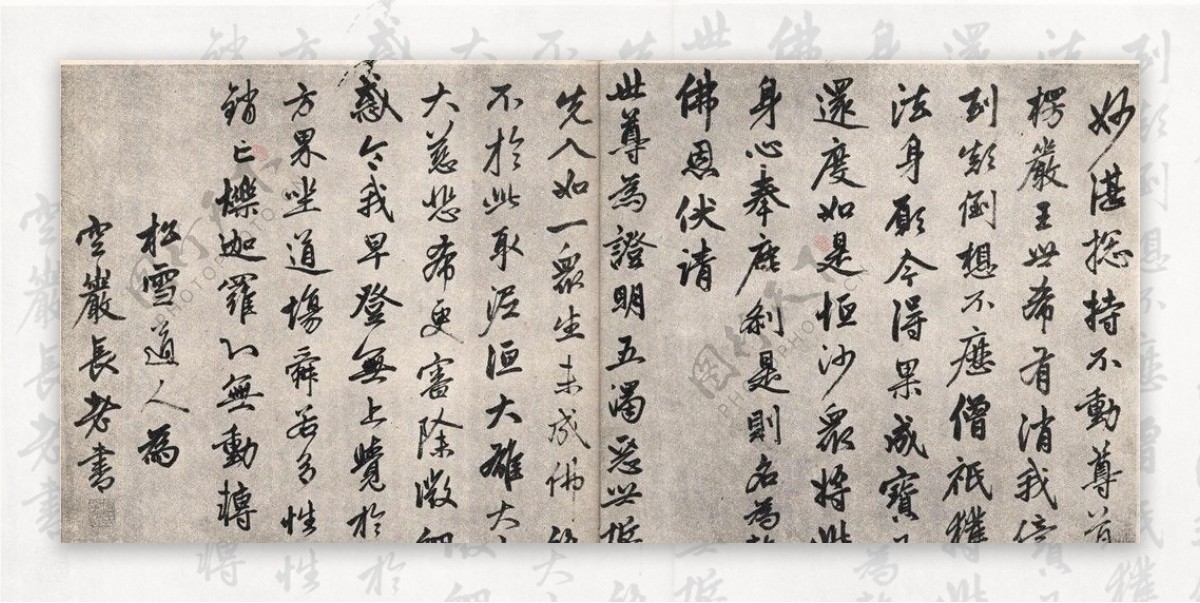 妙湛揔持不動尊首
楞嚴王世希有消我億
劫顛倒想不歷僧祇獲
法身願今得果成寶
還度如是恒沙眾將此
身心奉塵刹是則名為
佛恩伏請
世尊為證明五濁惡世誓
先入如一眾生未成佛終
不於此取泥洹大雄大
大慈悲希更審除微細
惑令我早登無上覺於
方界坐道場舜若多性
銷亡爍迦羅心無動轉
松雪道人為
空巖長老書